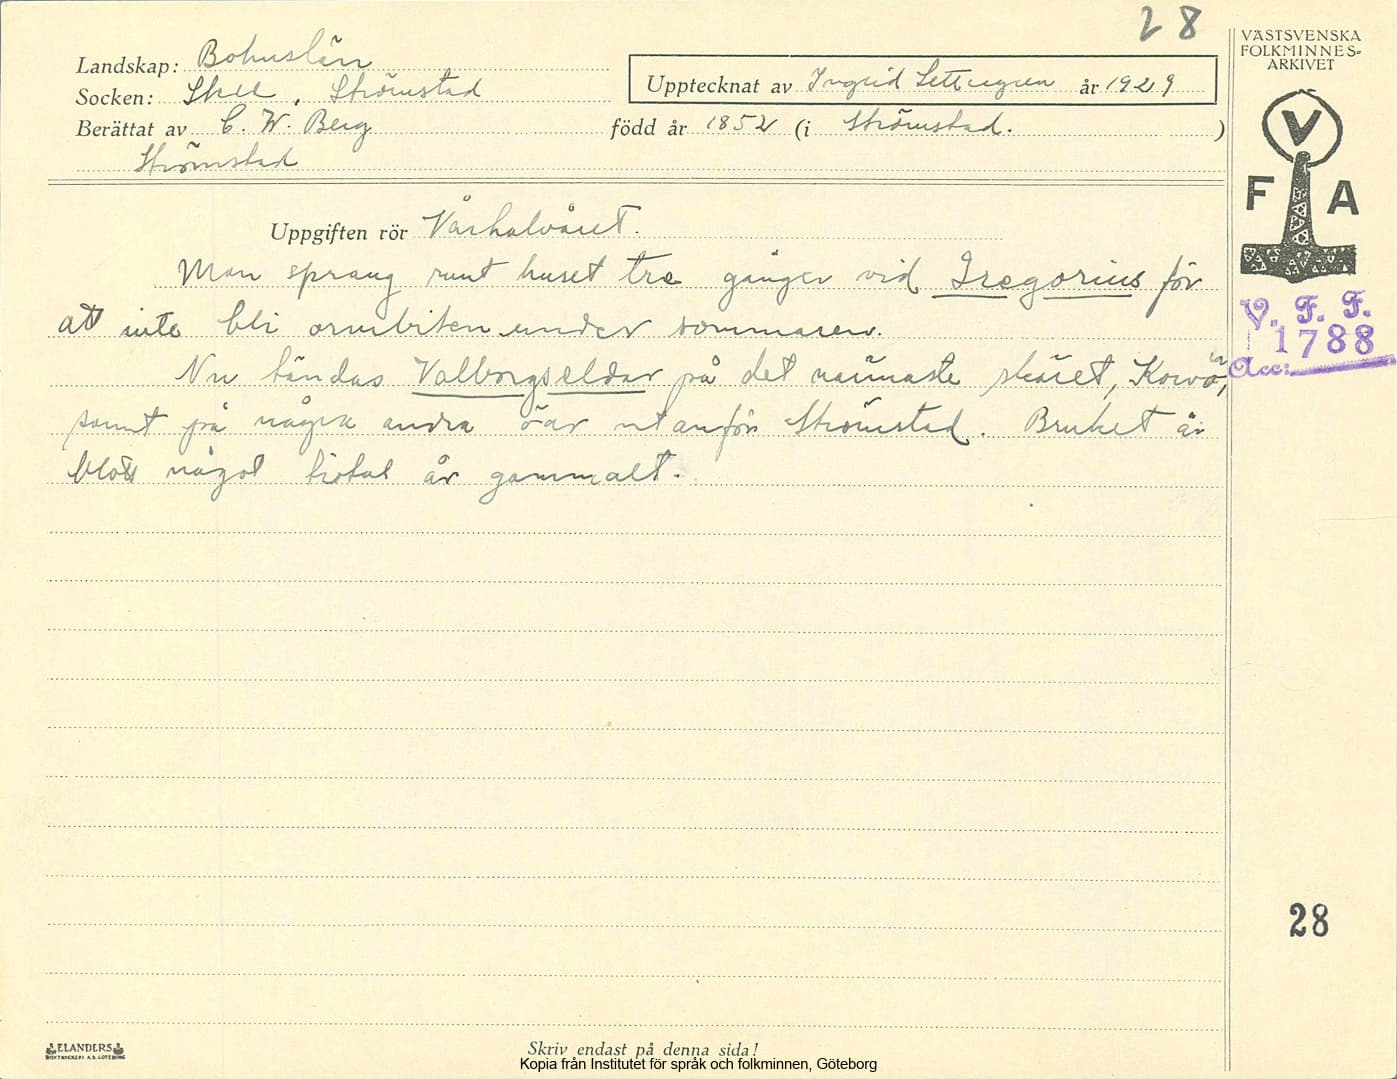 28
VÄSTSVENSKA
FOLKMINNES-
ARKIVET
Landskap: Bohuslän
Socken: Skee, Strömstad
Upptecknat av Ingrid år 1929
Berättat av C. W. Berg född år 1852 (i Strömstad.)
Strömstad
V
F A
V. F. F.
1788
Acc:
Uppgiften rör Vårhalvåret.
Man sprang runt huset tre gånger vid Gregorius för
att inte bli ormbiten under sommaren.
Nu tändas Valborgseldar på det närmaste skäret,
samt på några andra öar utanför Strömstad. Bruket är
blott något tiotal år gammalt.
28
ELANDERS
BOKTRYCKERI A.B. GÖTEBORG
Skriv endast på denna sida!
Kopia från Institutet för språk och folkminnen, Göteborg